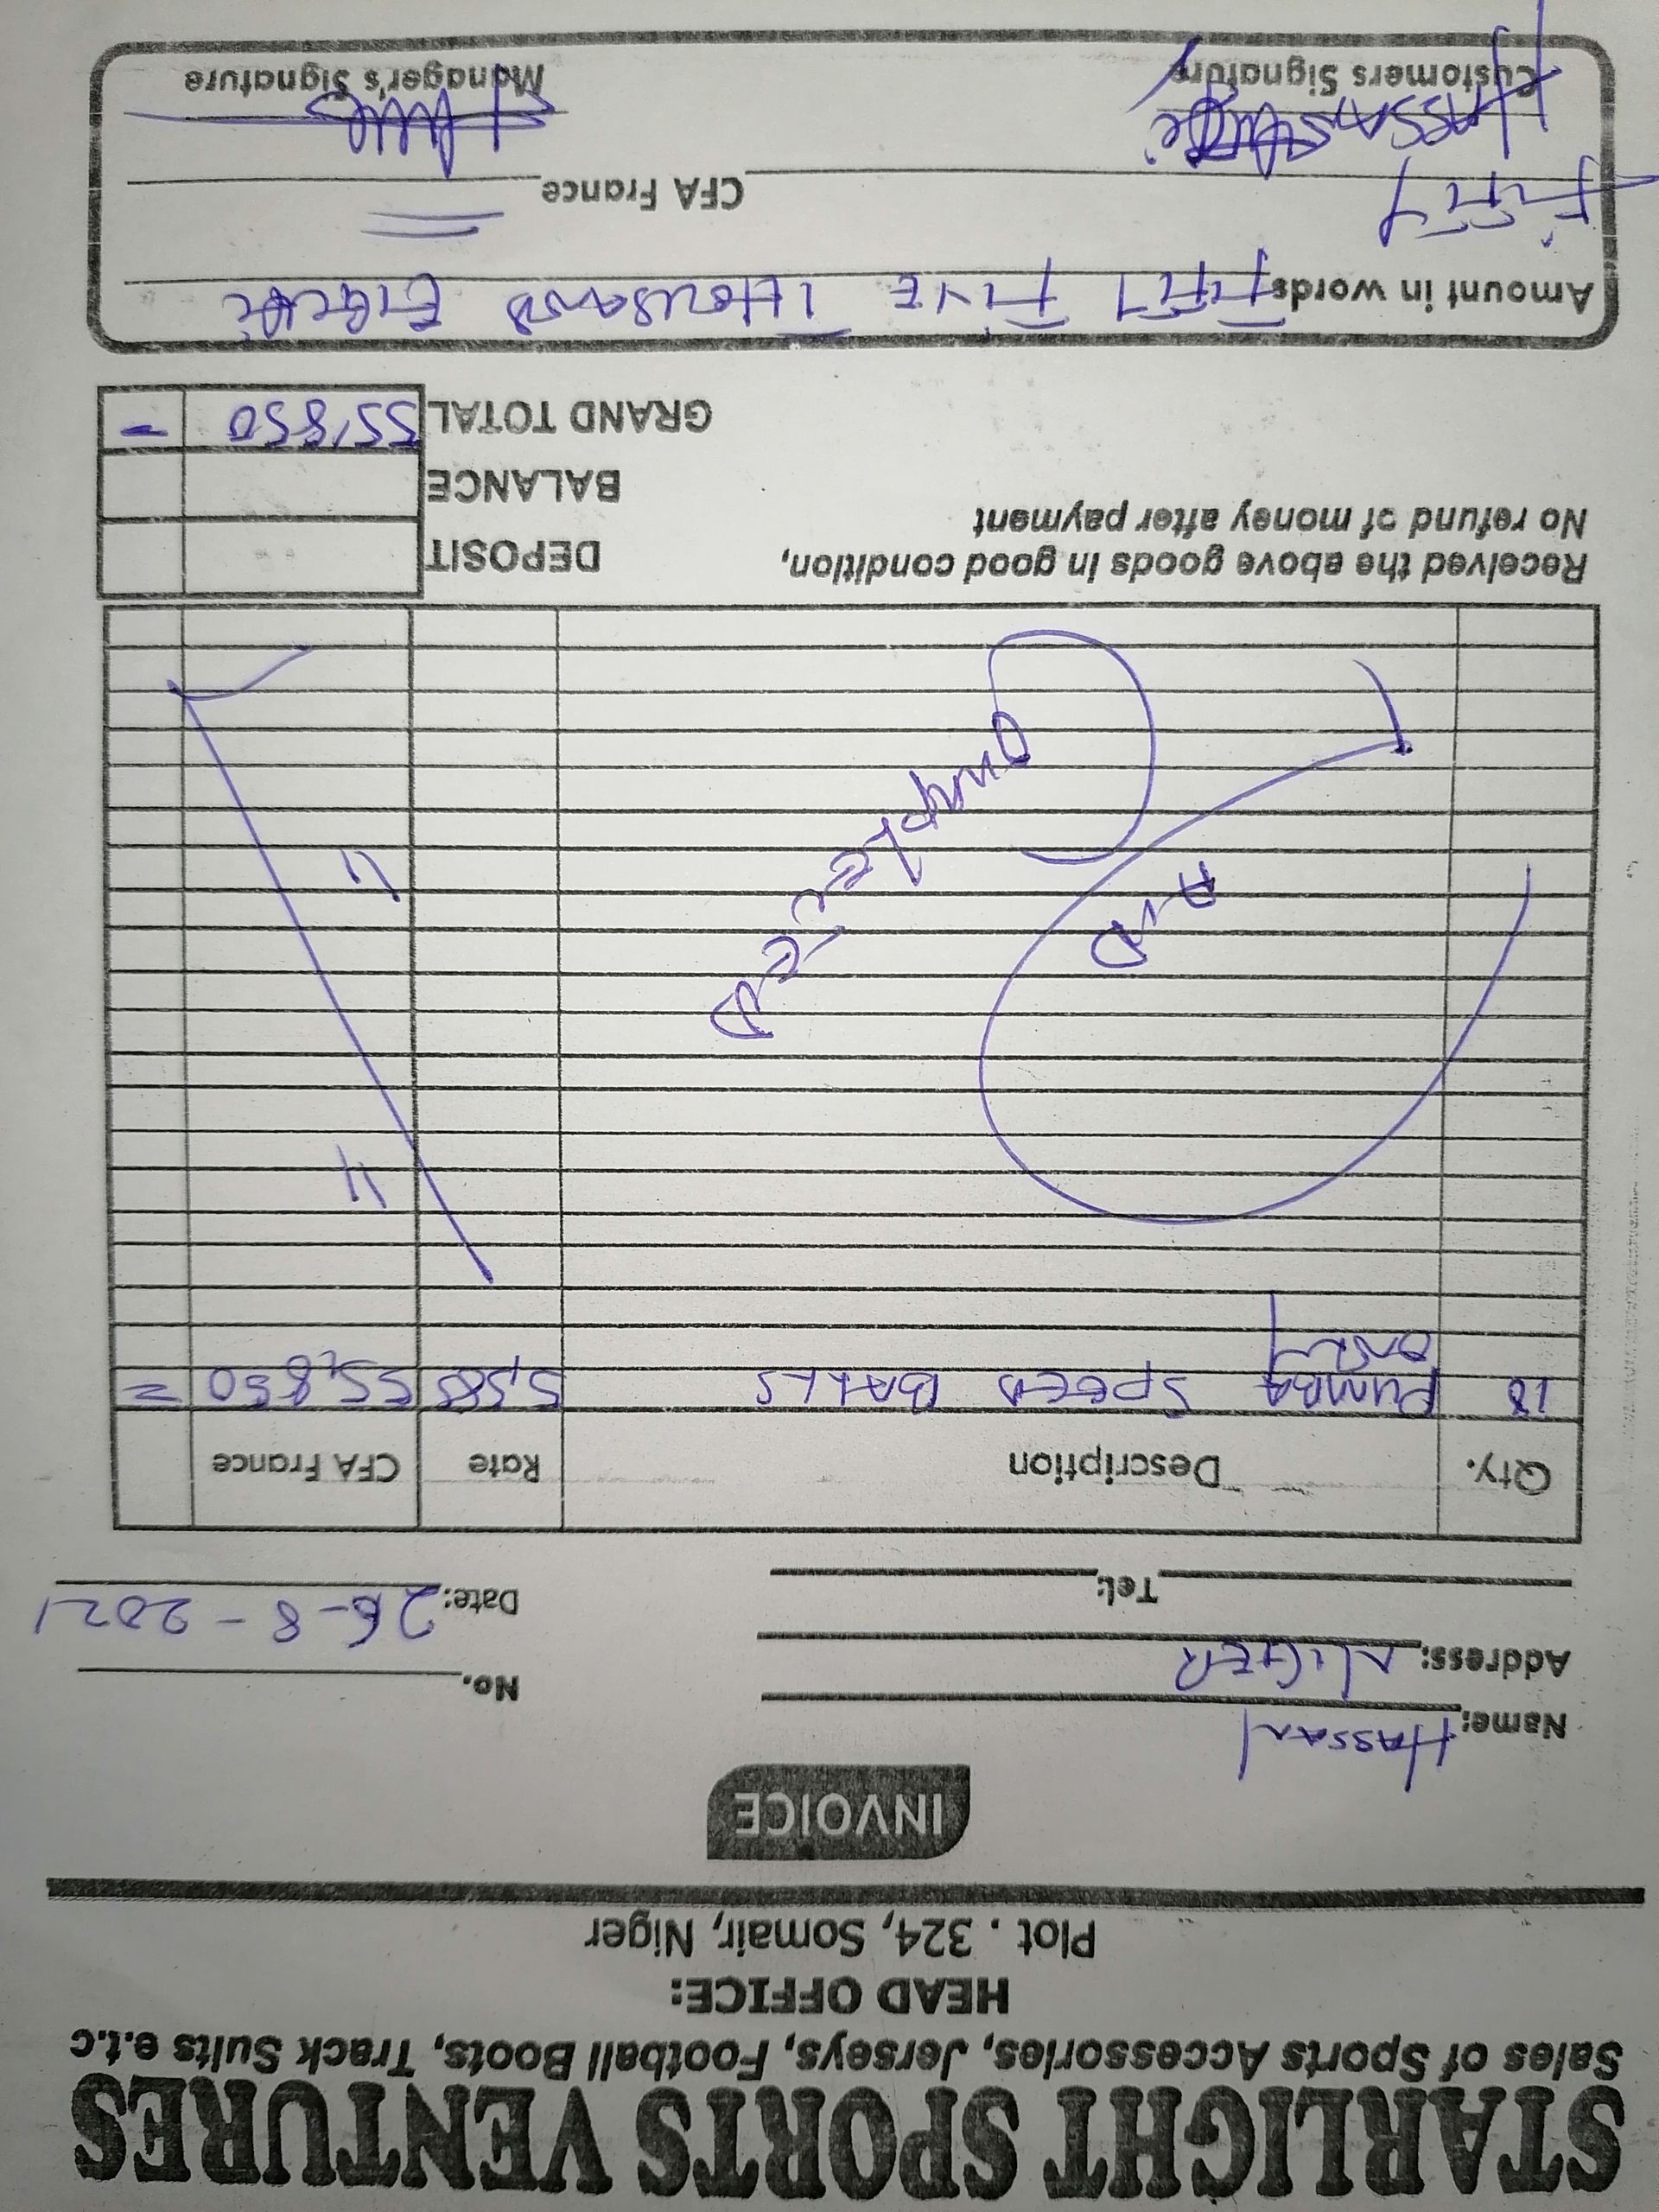 STARLIGHT SPORTS VENTURES
Sales of Sports Accessories, Jerseys, Football Boots, Track Suits e.t.c
HEAD OFFICE:
Plot . 324, Somair, Niger
INVOICE
Name: HASSAN
No.
Address: NIGER
Date: 26-8-2021
Tel:
Qty. Description Rate CFA France
10 PUMBA SPEED BALLS 5,585 55,850 =
ONLY
AND
COMPLETED
Received the above goods in good condition,
No refund of money after payment
DEPOSIT
BALANCE
GRAND TOTAL 55,850 =
Amount in words FIFTY FIVE THOUSAND EIGHT
FIFTY CFA France
HASSAN
Customers Signature Manager's Signature